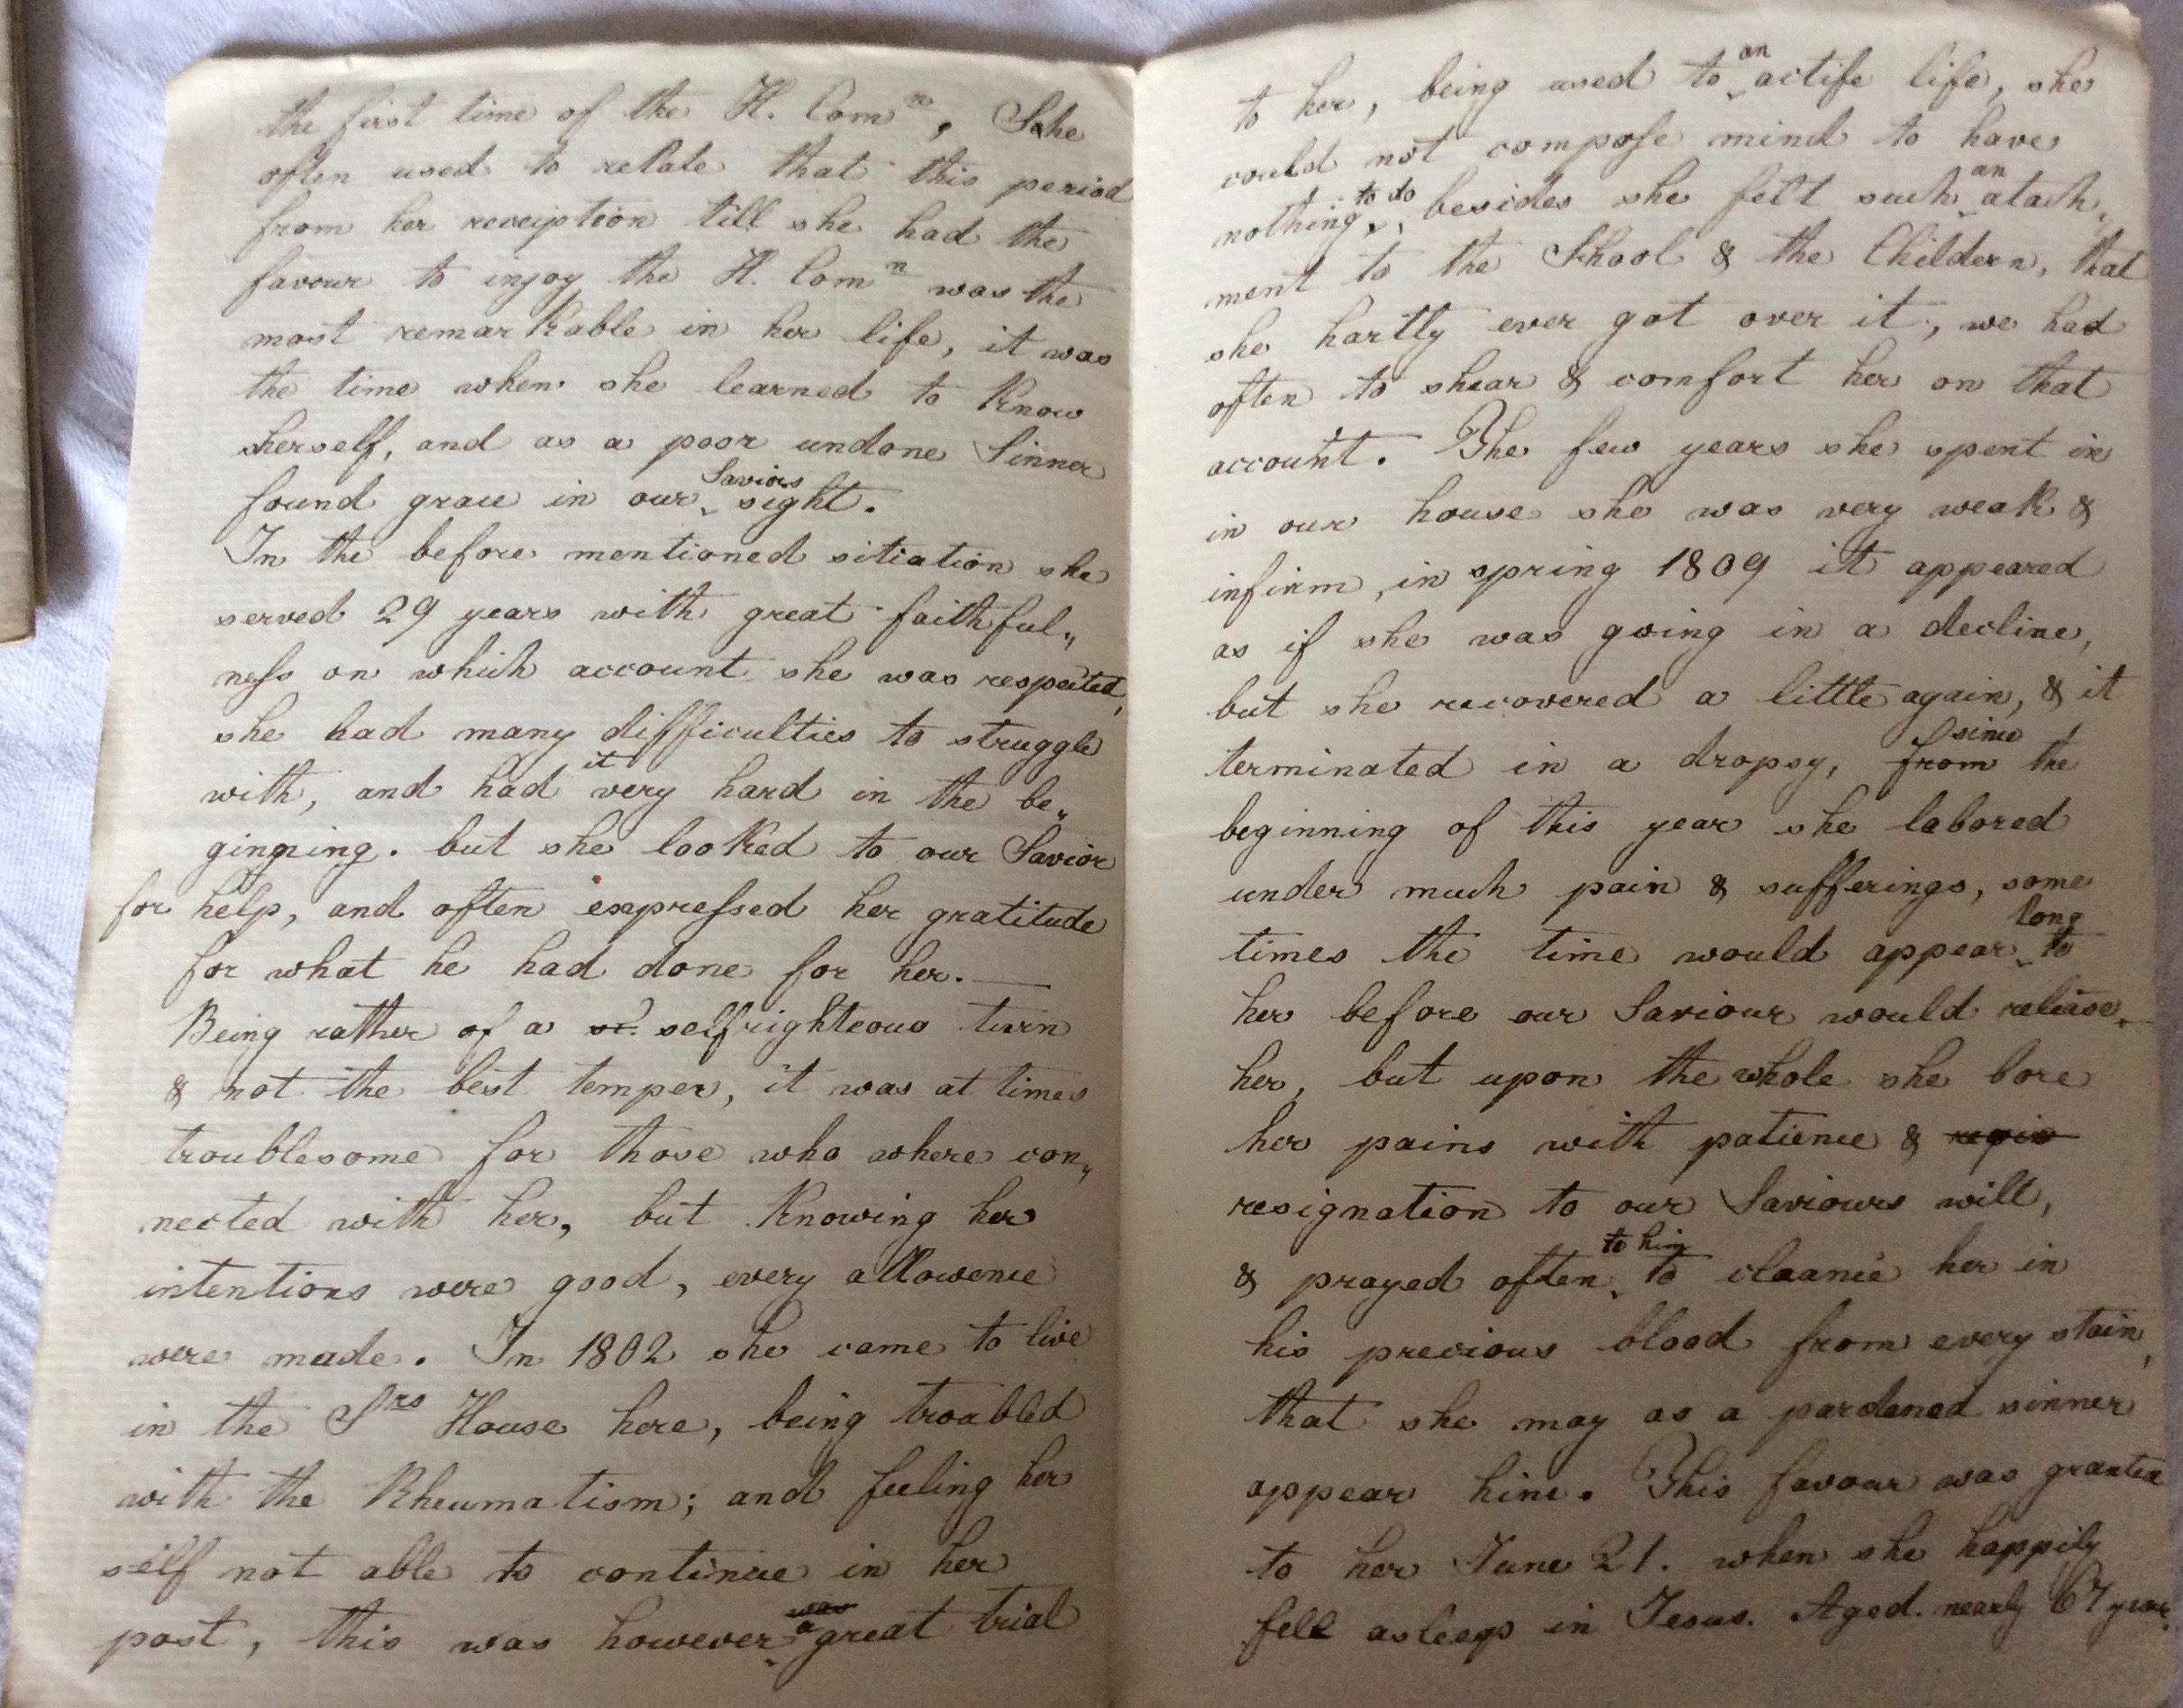 the first time of the H. Comn, She
often used to relate that this period
from her receiption till she had the
favour to injoy the H. Comn was the
most remarkable in her life, it was
the time when she learned to know
herself, and as a poor undone Sinner
found grace in our Saviors sight.
In the before mentioned sitiation she
served 29 years with great faithful„
ness on which account she was respected,
she had many difficulties to struggle
with, and had it very hard in the be„
ginging. but she looked to our Savior
for help, and often expressed her gratitude
for what he had done for her.—
Being rather of a selfrighteous turn
& not the best temper, it was at times
troublesome for those who where con„
nected with her, but knowing her
intentions were good, every allowence
were made. In 1802 she came to live
in the Srs House here, being troubled
with the Rheumatism; and feeling her
self not able to continue in her
post, this was however was a great trial
to her, being used to an actife life, she
could not compose mind to have
nothing to do, besides she felt such an atach„
ment to the School & the Childern, that
she hartly ever got over it, we had
often to shear & comfort her on that
account. The few years she spent in
in our house she was very weak &
infirm, in spring 1809 it appeared
as if she was going in a decline,
but she recovered a little again, & it
terminated in a dropsy, from since the
beginning of this year she labored
under much pain & sufferings, some
times the time would appear long to
her before our Saviour would reliase
her, but upon the whole she bore
her pains with patience &
resignation to our Saviours will,
& prayed often to him to claance her in
his precious blood from every stain,
that she may as a pardened sinner
appear him. This favour was granted
to her June 21. when she happily
fell asleep in Jesus. Aged. nearly 67 year.